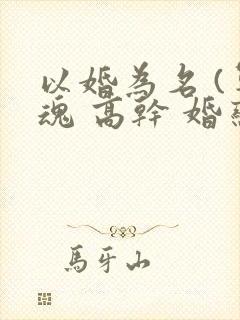 以婚為名(
魂 高幹 婚
馬牙山